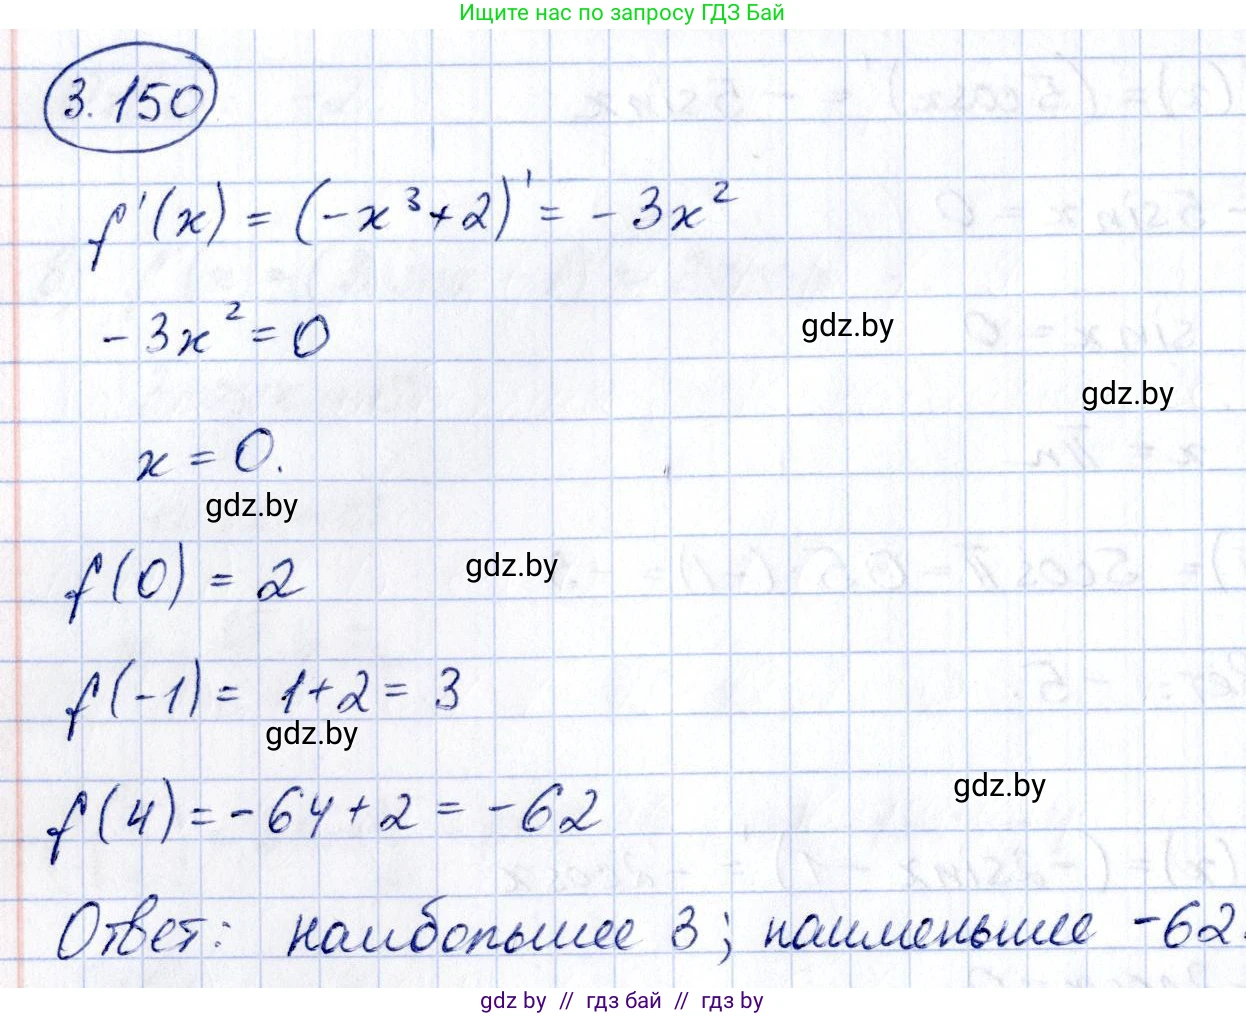 Ищите нас по запросу ГДЗ Бай
3.150
f'(x) = (-x³+2)' = -3x²
-3x² = 0
gdz.by
gdz.by
x = 0.
gdz.by
f(0) = 2
gdz.by
f(-1) = 1+2 = 3
gdz.by
f(4) = -64+2 = -62
gdz.by
Ответ: наибольшее 3; наименьшее -62.
gdz by // гдз бай // гдз by